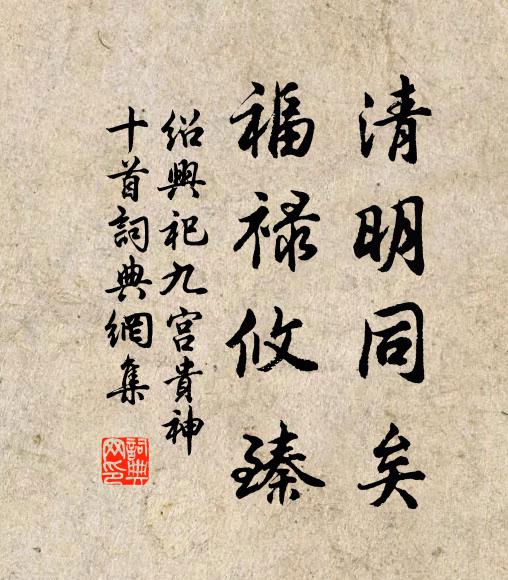 清明同矣
福禄攸臻
绍興祀九宫貴神
十首詞典網集
詞典
网印